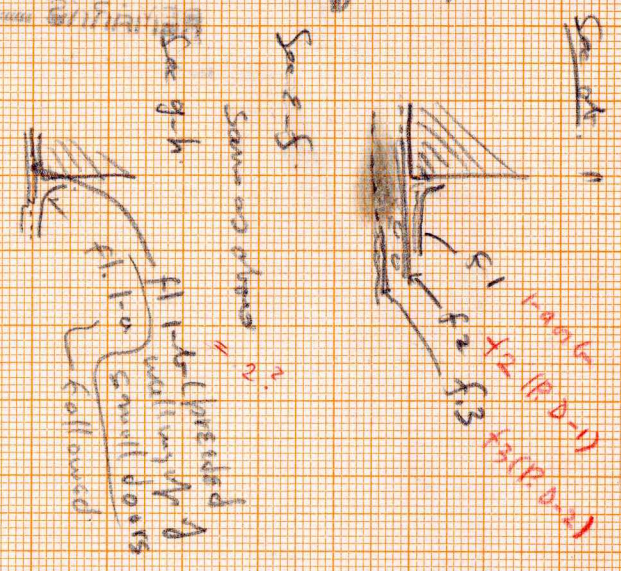 f1
f2
f.3
1-a or b
f2 (P.D-1)
f3 (P.D-2)
Sec e-f.
Same as above
= 2?
Sec g-h.
fl 1-b (preceded
walling up of
small doors
fl. 1-a
followed